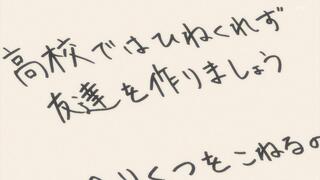 高校ではひねくれず
友達を作りましょう
りくつをこねるの